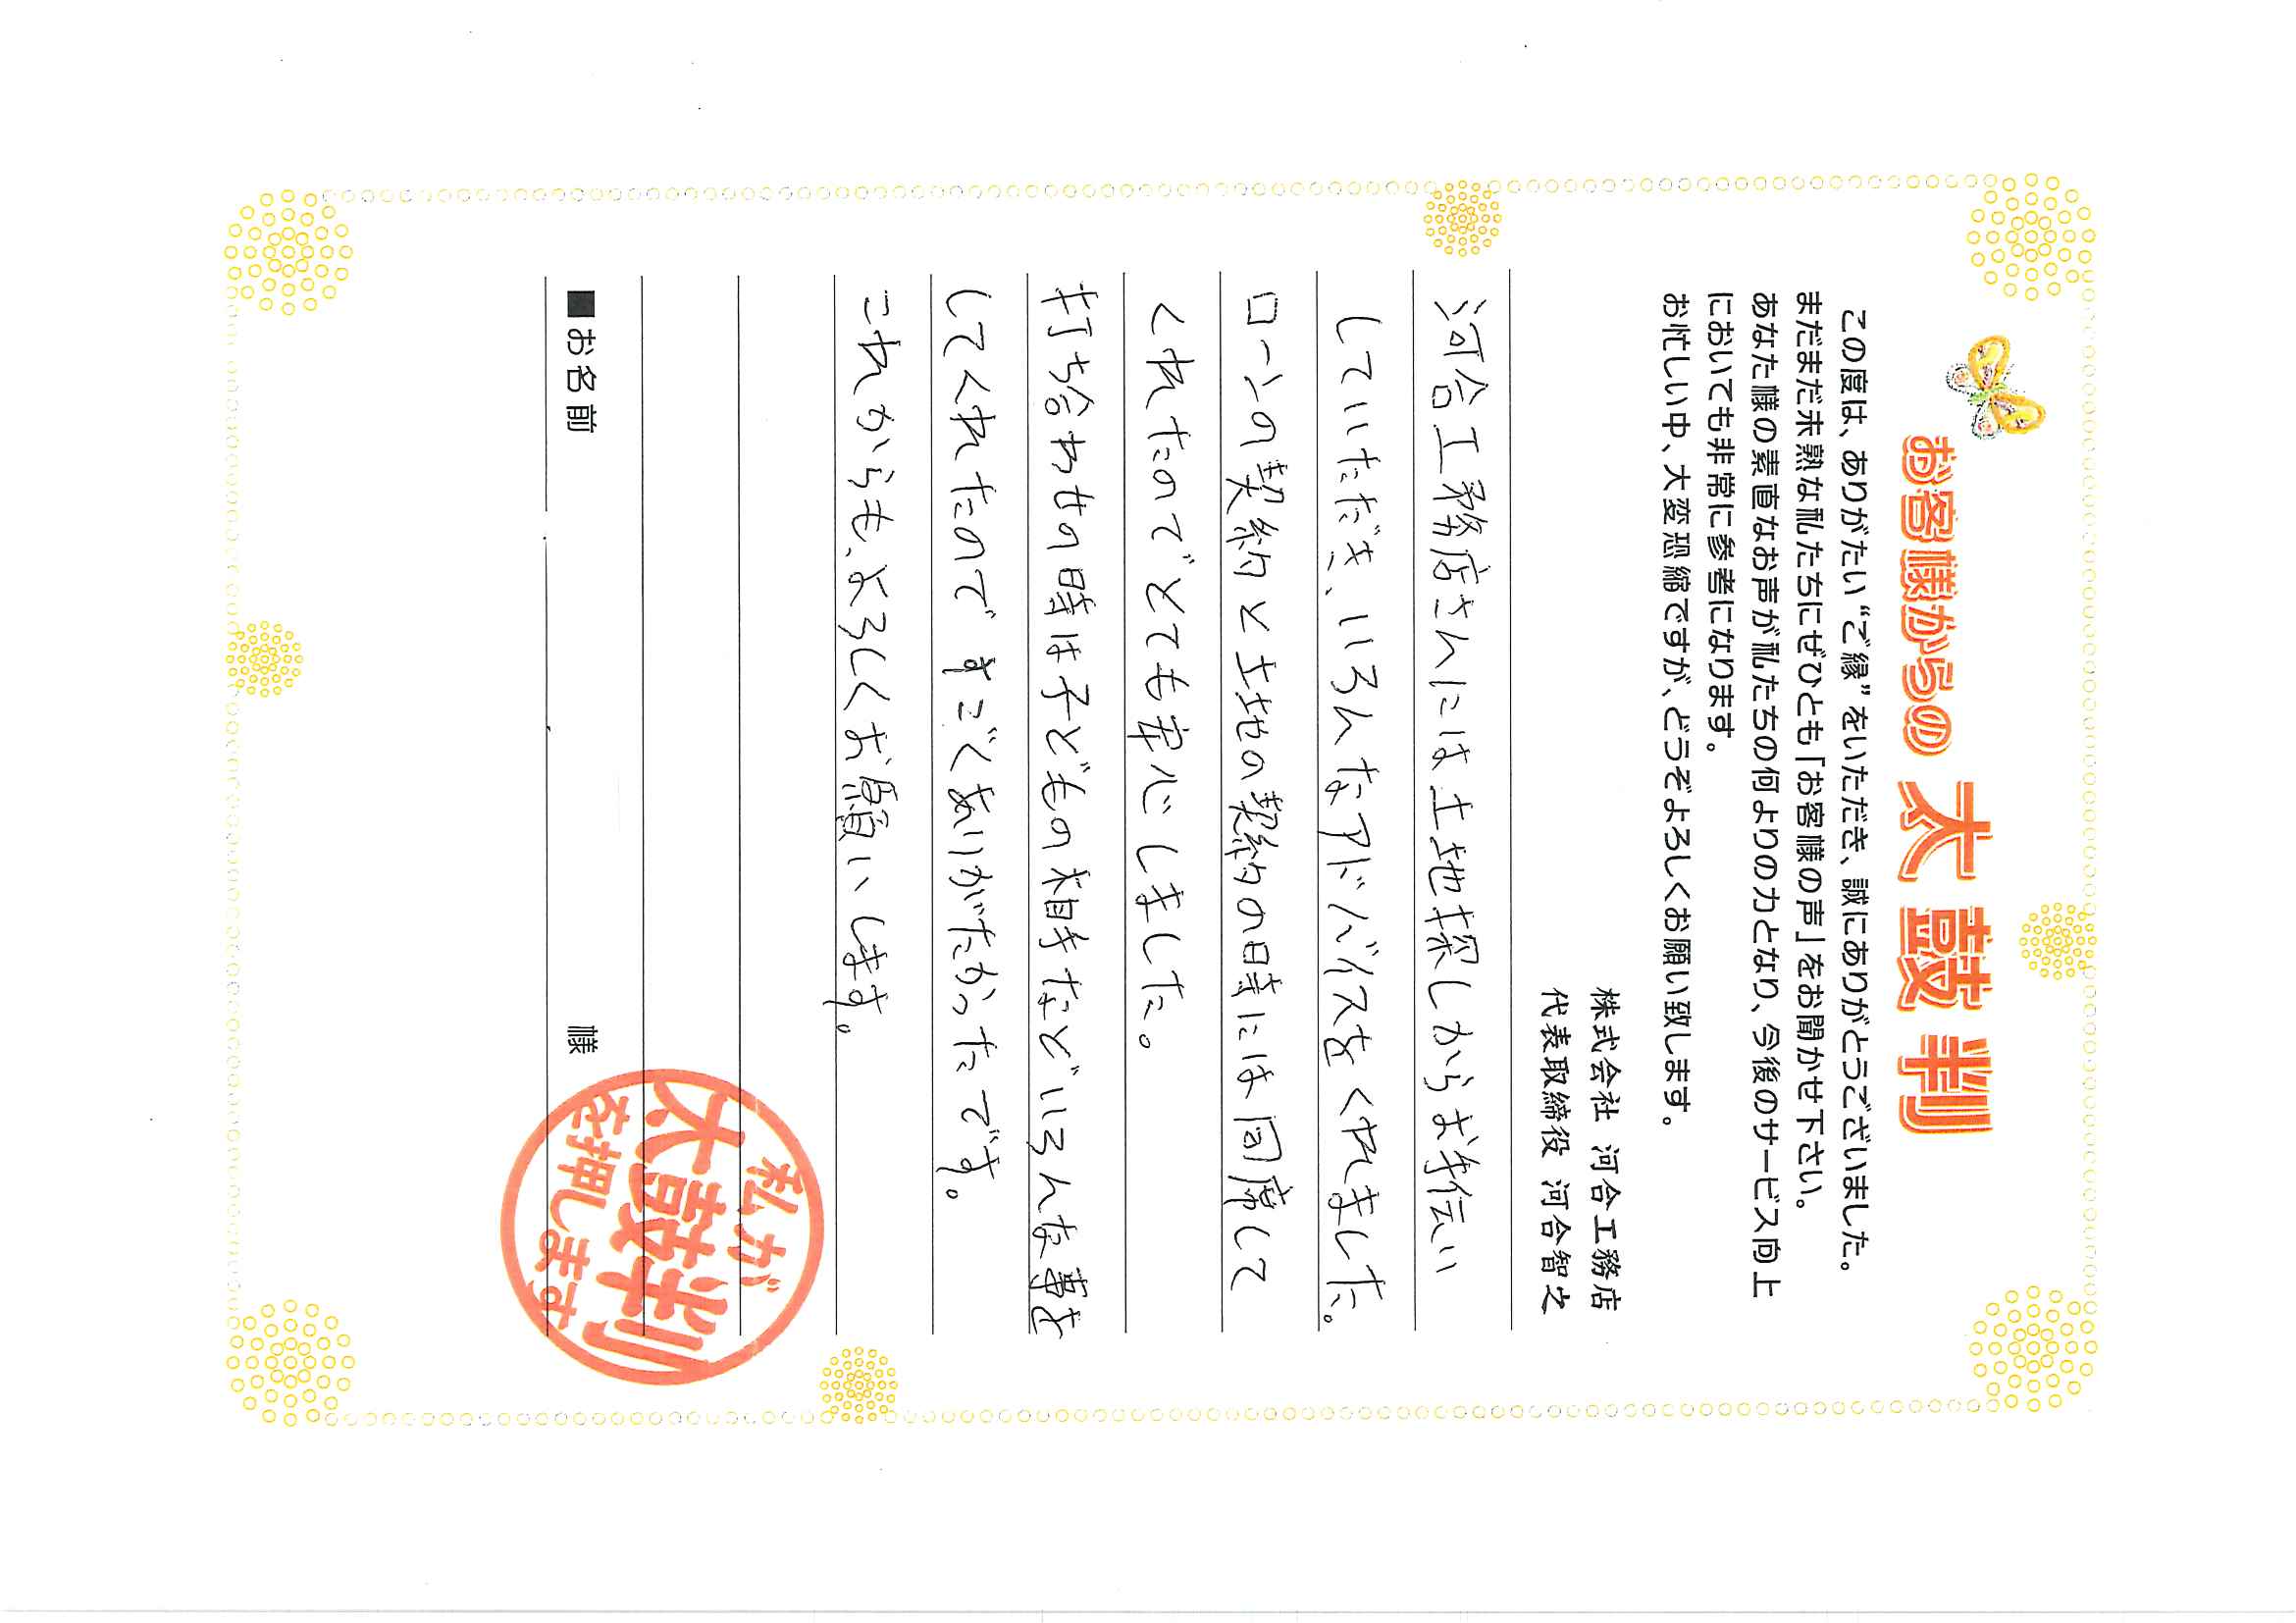 お客様からの 太鼓判
この度は、ありがたい“ご縁”をいただき、誠にありがとうございました。
まだまだ未熟な私たちにぜひとも「お客様の声」をお聞かせ下さい。
あなた様の素直なお声が私たちの何よりの力となり、今後のサービス向上
においても非常に参考になります。
お忙しい中、大変恐縮ですが、どうぞよろしくお願い致します。
株式会社 河合工務店
代表取締役 河合智之
河合工務店さんには土地探しからお手伝い
していただき、いろんなアドバイスをくれました。
ローンの契約と土地の契約の時には同席して
くれたのでとても安心しました。
打ち合わせの時は子どもの相手などいろんな事を
してくれたのですごくありがたかったです。
これからも、よろしくお願いします。
■お名前 様
私が
太鼓判
を押します